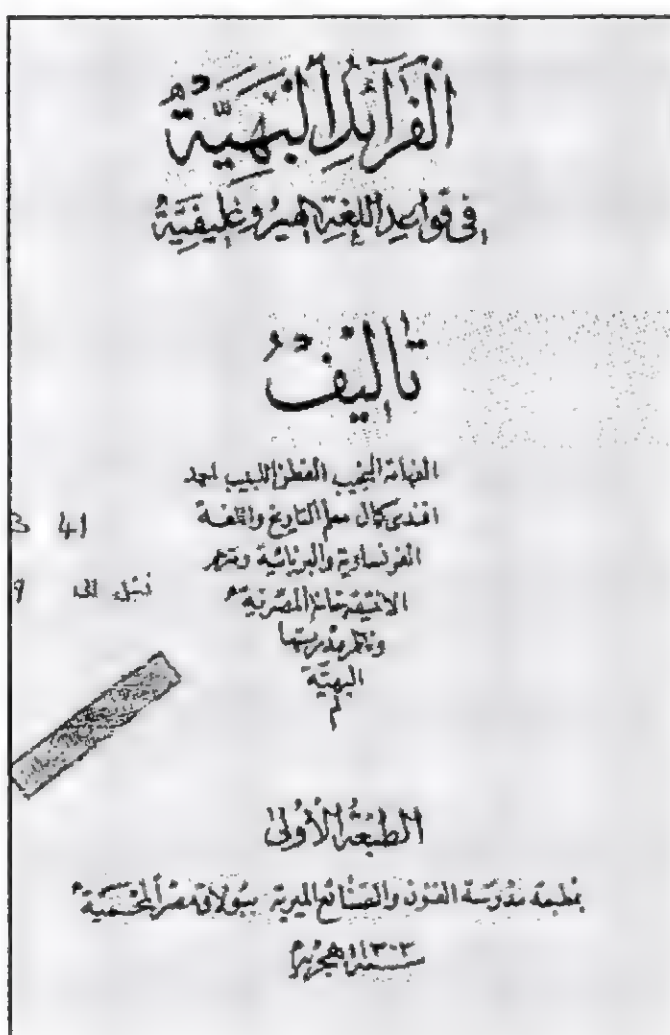 الفَرَائِدُ الْبَهِيَّةُ
فِي قَوَاعِدِ اللُّغَةِ الهِيرُوغْلِيفِيَّةِ
تَأْلِيْفُ
الفهامة النجيب الفطن اللبيب احمد
افندى كمال معلم التاريخ واللغة
الفرنساوية والبربائية ومترجم
الانتيقه خانه المصريّة
وناظر مدرستها
البهيّة
م
3 41
9
الطبعة الأولى
بمطبعة مدرسة الفنون والصنائع الميرية ببولاق مصر المحمية
سنة ١٣٠٣ هجرية